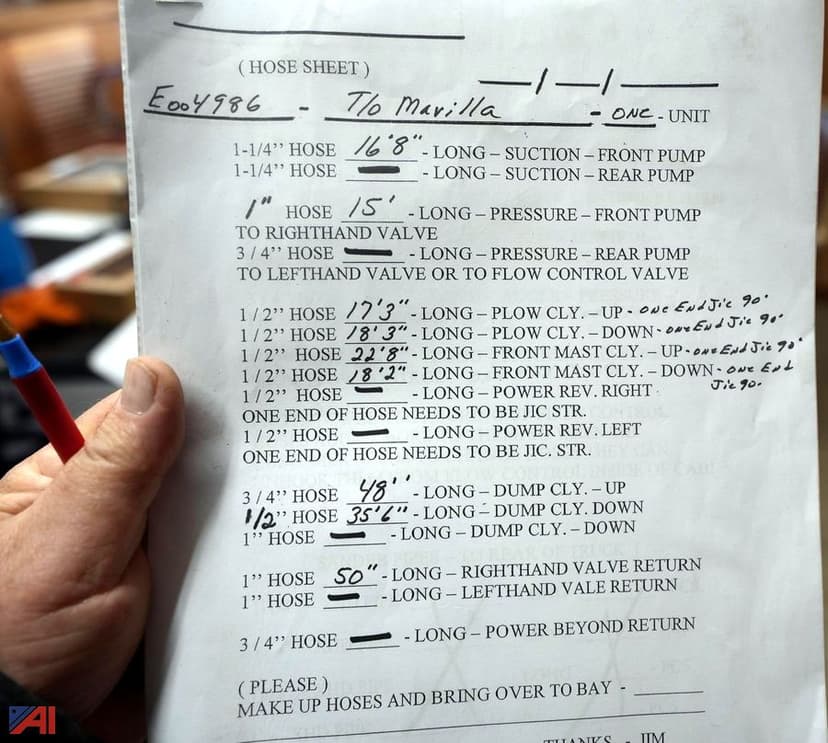 ( HOSE SHEET )
— / — / —
E004986 - T/o Marilla - ONE - UNIT
1-1/4’’ HOSE 16'8" - LONG – SUCTION – FRONT PUMP
1-1/4’’ HOSE — - LONG – SUCTION – REAR PUMP
1" HOSE 15' - LONG – PRESSURE – FRONT PUMP
TO RIGHTHAND VALVE
3 / 4’’ HOSE — - LONG – PRESSURE – REAR PUMP
TO LEFTHAND VALVE OR TO FLOW CONTROL VALVE
1 / 2’’ HOSE 17'3" - LONG – PLOW CLY. – UP - ONE End Jic 90°
1 / 2’’ HOSE 18'3" - LONG – PLOW CLY. – DOWN - ONE End Jic 90°
1 / 2’’ HOSE 22'8" - LONG – FRONT MAST CLY. – UP - ONE End Jic 90°
1 / 2’’ HOSE 18'2" - LONG – FRONT MAST CLY. – DOWN - ONE End
Jic 90.
1 / 2’’ HOSE — - LONG – POWER REV. RIGHT
ONE END OF HOSE NEEDS TO BE JIC STR.
1 / 2’’ HOSE — - LONG – POWER REV. LEFT
ONE END OF HOSE NEEDS TO BE JIC. STR.
3 / 4’’ HOSE 48'' - LONG – DUMP CLY. – UP
1/2" HOSE 35'6" - LONG – DUMP CLY. DOWN
1’’ HOSE — - LONG – DUMP CLY. – DOWN
1’’ HOSE 50" - LONG – RIGHTHAND VALVE RETURN
1’’ HOSE — - LONG – LEFTHAND VALE RETURN
3 / 4’’ HOSE — - LONG – POWER BEYOND RETURN
( PLEASE )
MAKE UP HOSES AND BRING OVER TO BAY -
THANKS - JIM
AI